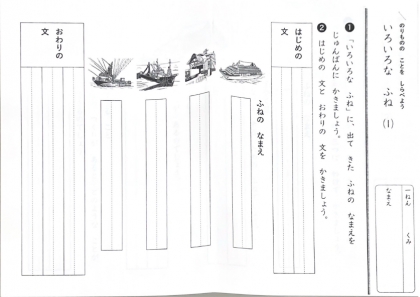 のりものの ことを しらべよう
いろいろな ふね (1)
一ねん くみ
なまえ
❶ 「いろいろな ふね」に、出て きた ふねの なまえを
じゅんばんに かきましょう。
❷ はじめの 文と おわりの 文を かきましょう。
はじめの
文
ふねの なまえ
おわりの
文